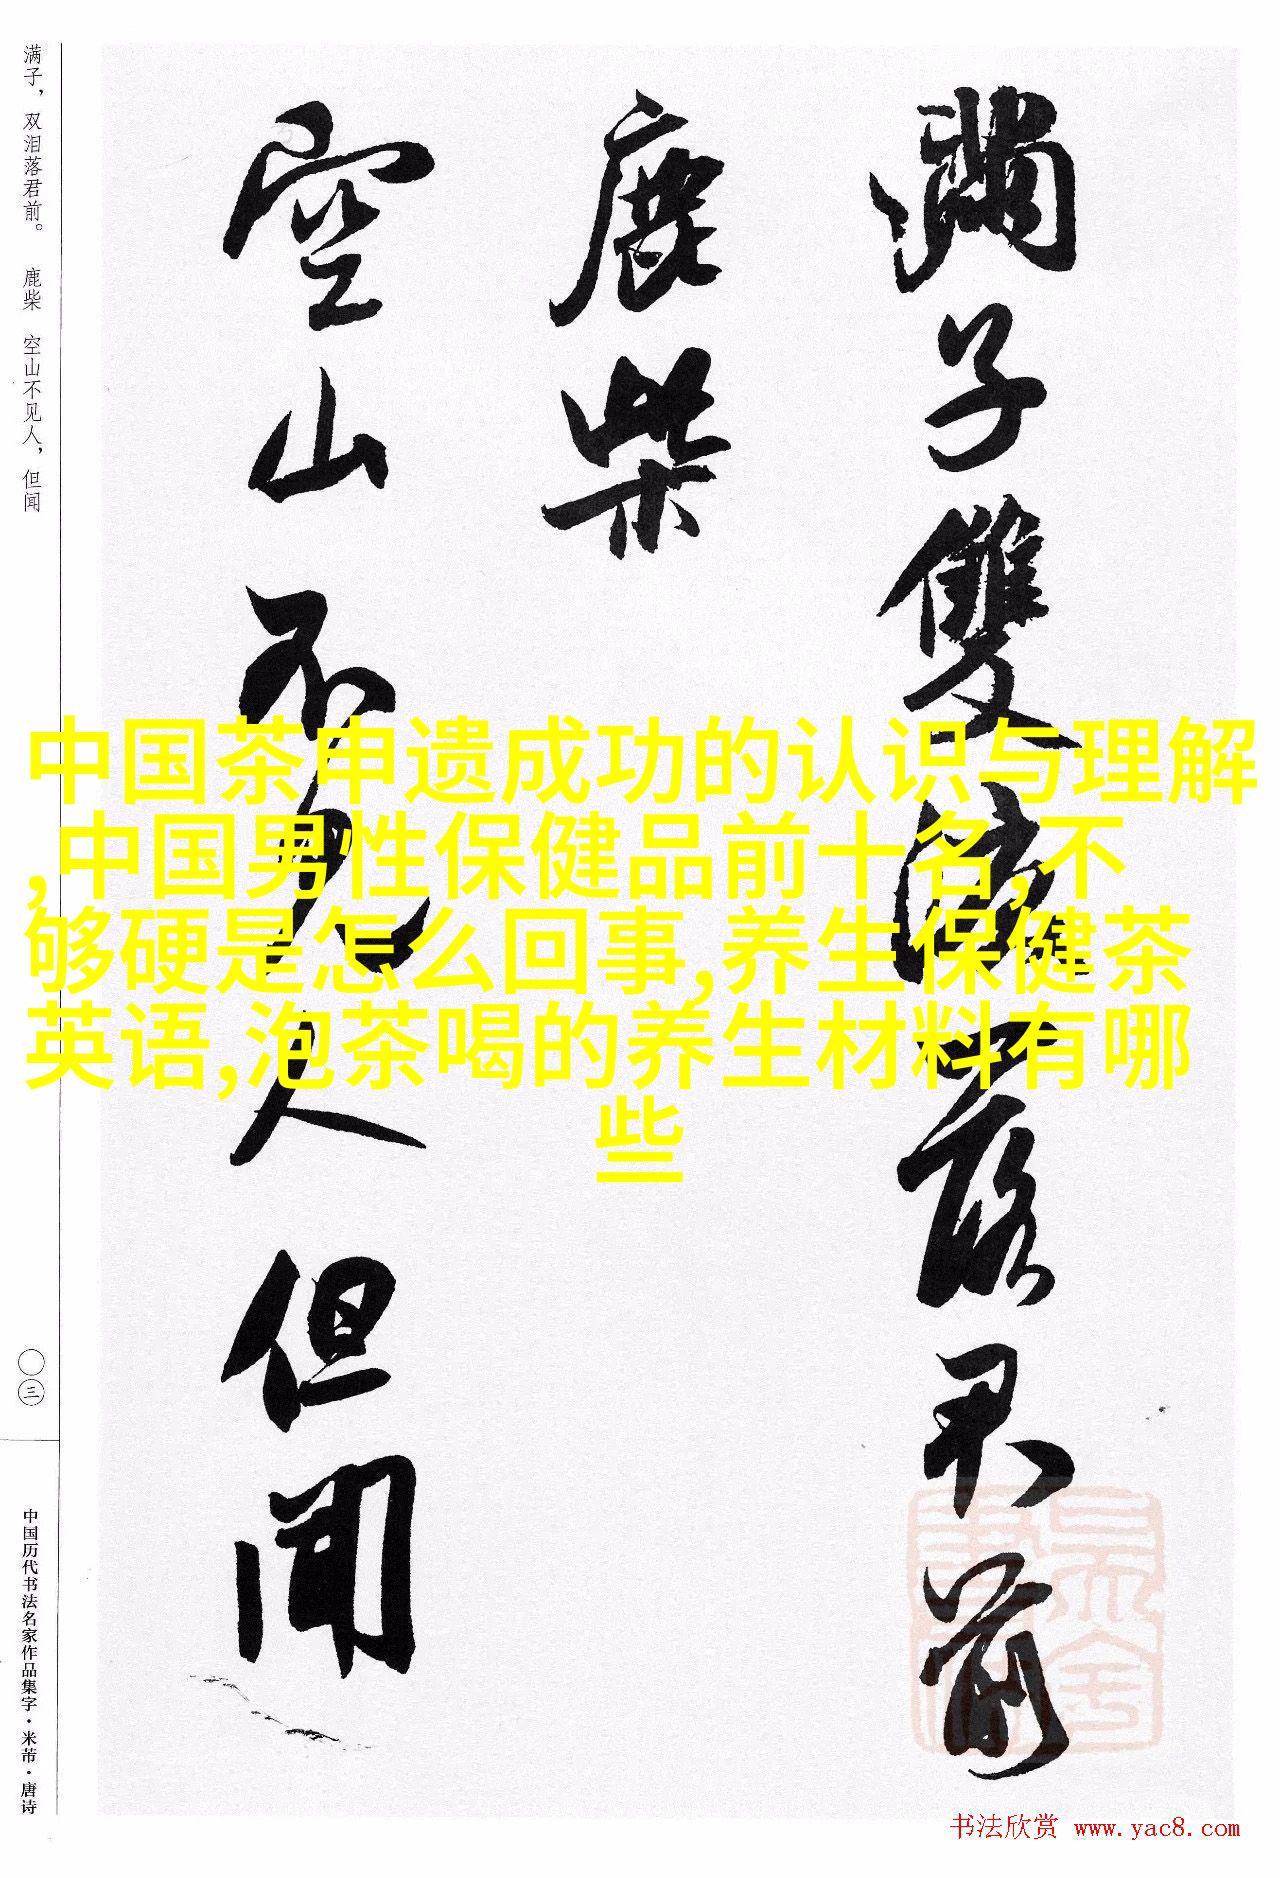 滿子雙淚落君前
鹿柴
空山不見人但聞
满子，双泪落君前。 鹿柴 空山不见人，但闻
〇三
中国历代书法名家作品集字·米芾·唐诗
中国茶申遗成功的认识与理解
,中国男性保健品前十名,不
够硬是怎么回事,养生保健茶
英语,泡茶喝的养生材料有哪
些
书法欣赏 www.yac8.com